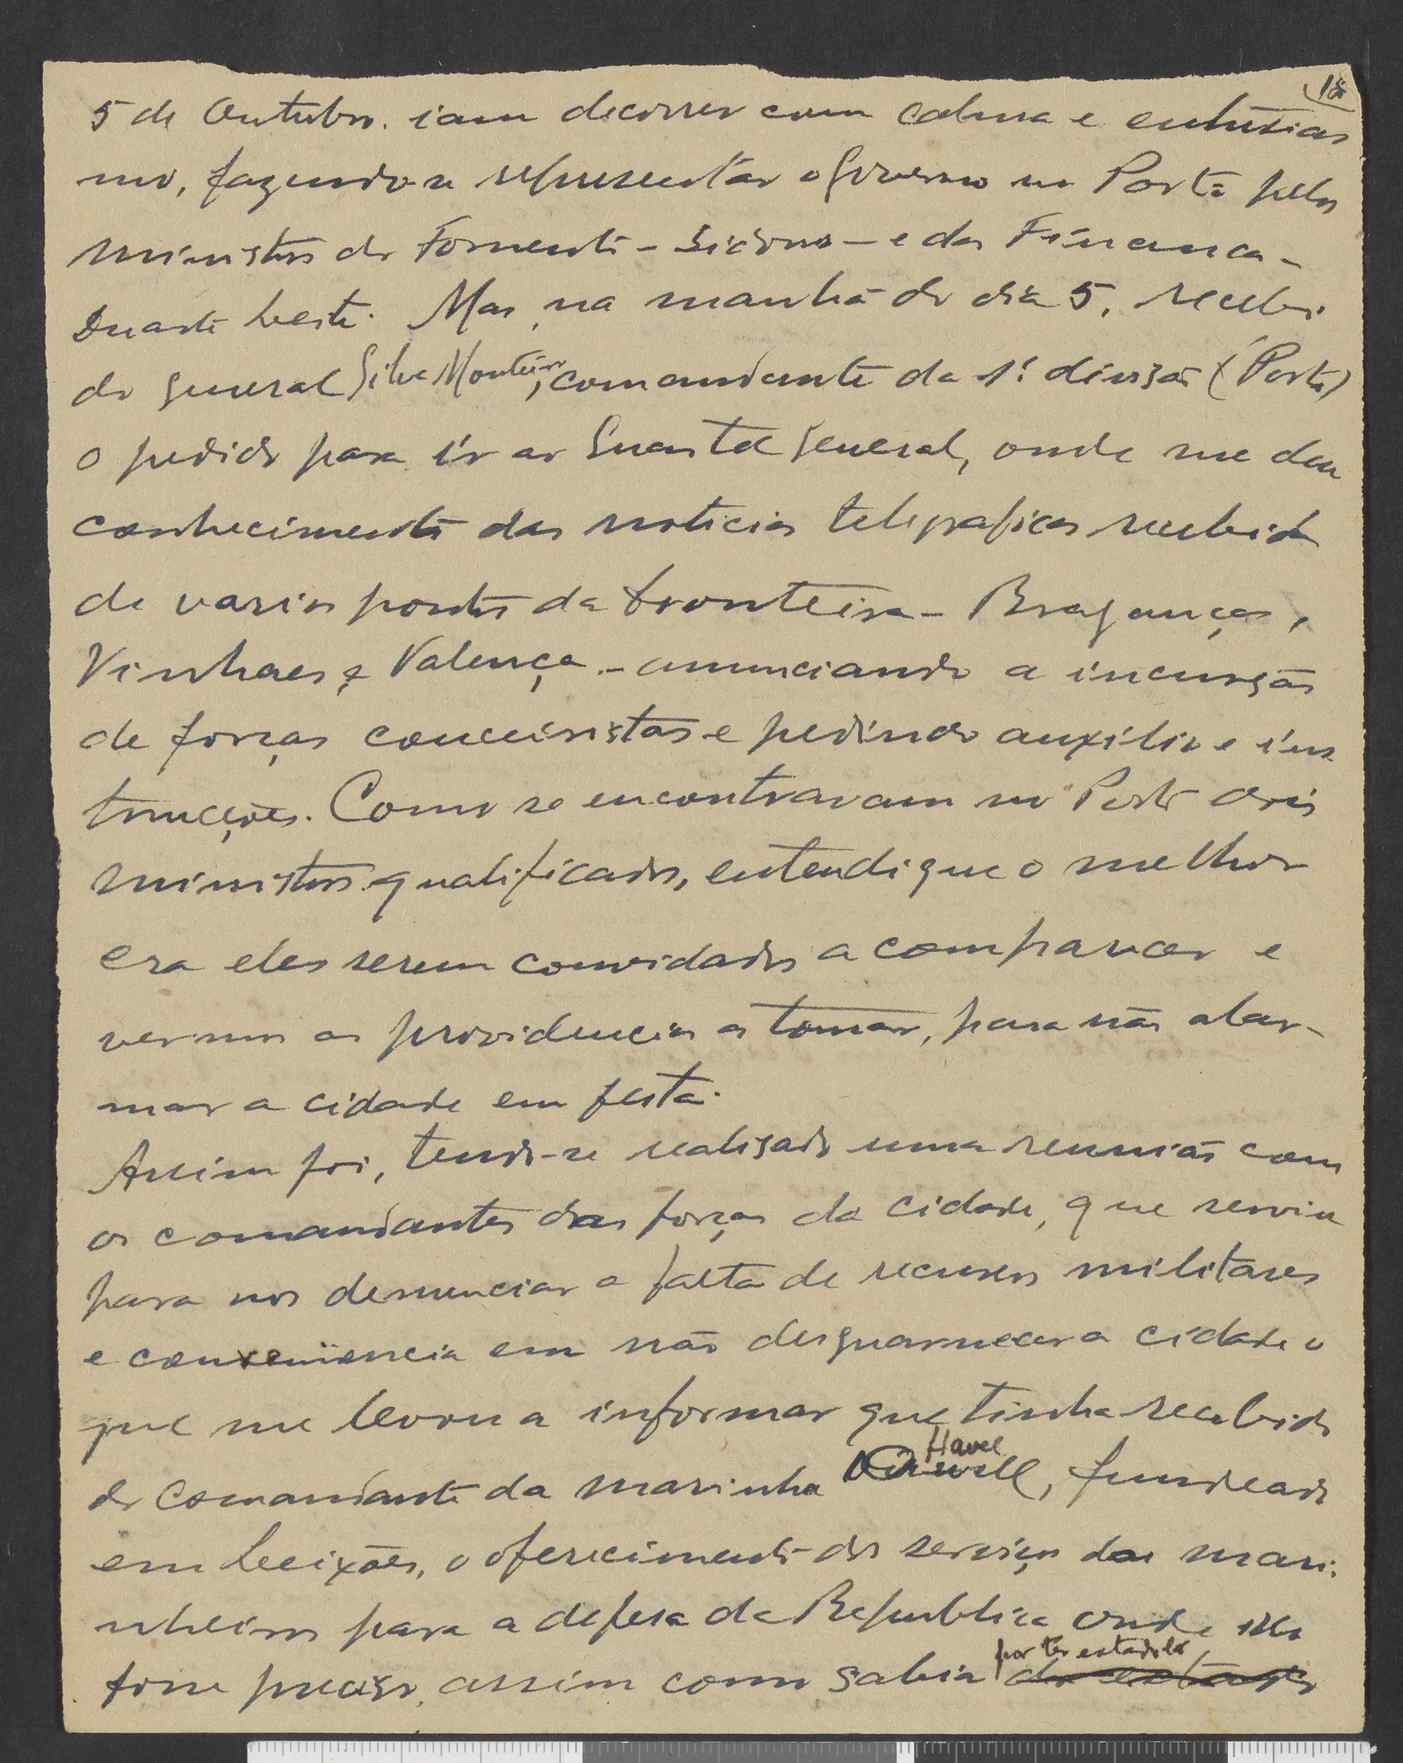 18
5 de Outubro. iam decorrer com calma e entusias
mo, fazendo-se representar o Governo no Porto pelos
ministros do Fomento - Sidonio - e das Finanças -
Duarte Leite. Mas, na manhã do dia 5, recebi
do general Silva Monteiro, comandante da 1ª divisão (Porto)
o pedido para ir ao Quartel General, onde me deu
conhecimento das noticias telegraficas recebidas
de varios pontos da fronteira - Bragança,
Vinhaes e Valença - anunciando a incursão
de forças couceiristas e pedindo auxilio e ins
truções. Como se encontravam no Porto dois
ministros qualificados, entendi que o melhor
era eles serem convidados a comparecer e
vermos as providencias a tomar, para não alar-
mar a cidade em festa.
Assim foi, tendo-se realisado uma reunião com
os comandantes das forças da cidade, que serviu
para nos denunciar a falta de recursos militares
e conveniencia em não desguarnecer a cidade o
que me levou a informar que tinha recebido
Havel
do comandante da marinha, fundeado
em Leixões, o oferecimento dos serviços dos mari-
nheiros para a defesa da Republica onde
fosse preciso, assim como sabia por ter estado lá do estado